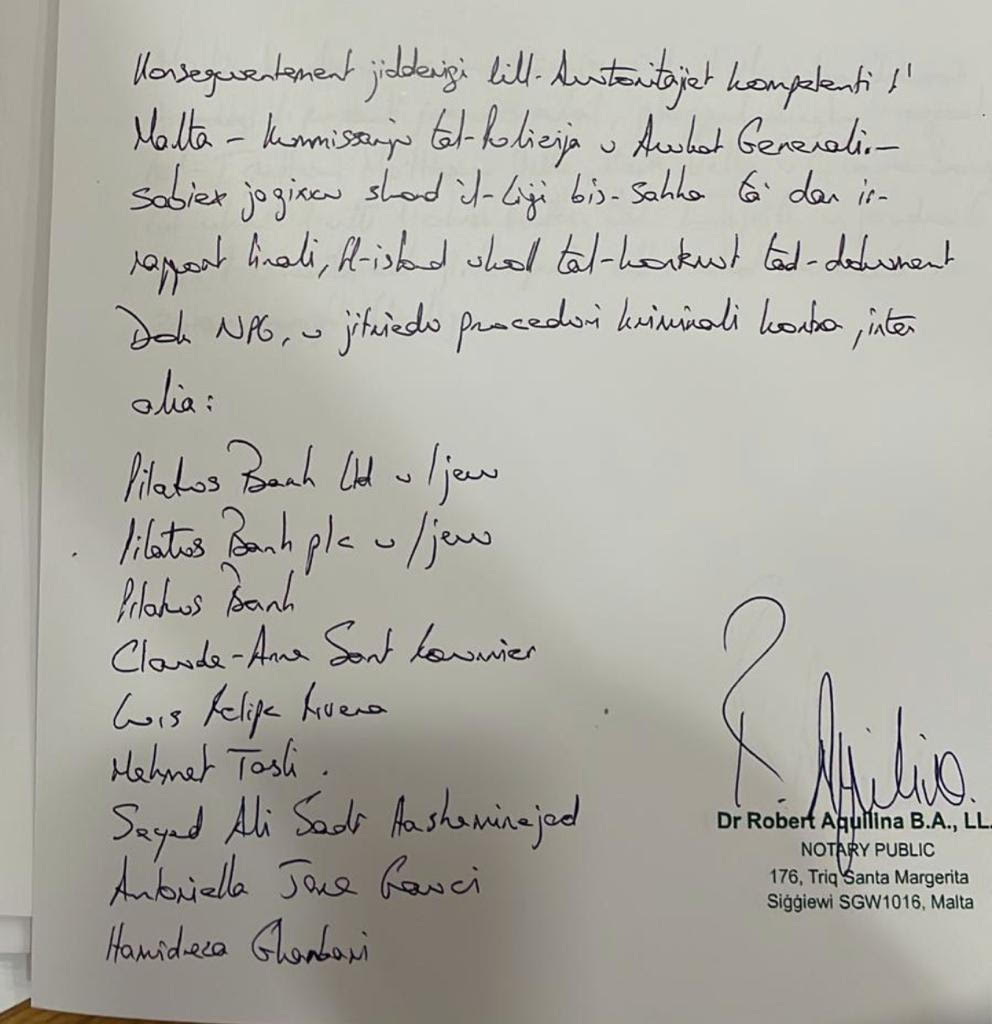 Konsegwentement jidderigi lill-Awtoritajiet kompetenti f'
Malta - Kummissarju tal-Pulizija u Avukat Generali -
sabiex jagixxu skond il-Ligi bis-sahha ta' dan ir-
rapport finali, fl-isfond shol tal-kontenut tad-dokument
Dok NPG, u jitniedu proceduri kriminali kontra, inter
alia:
Pilatus Bank Ltd u/jew
Pilatus Bank plc u/jew
Pilatus Bank
Claude-Anne Sant Fournier
Luis Felipe Rivera
Mehmet Tasli .
Sayed Ali Sadr Hasheminejad
Antoniella Jane Gauci
Hamidreza Ghanbari
R. Aquilina.
Dr Robert Aquilina B.A., LL.
NOTARY PUBLIC
176, Triq Santa Margerita
Siġġiewi SGW1016, Malta